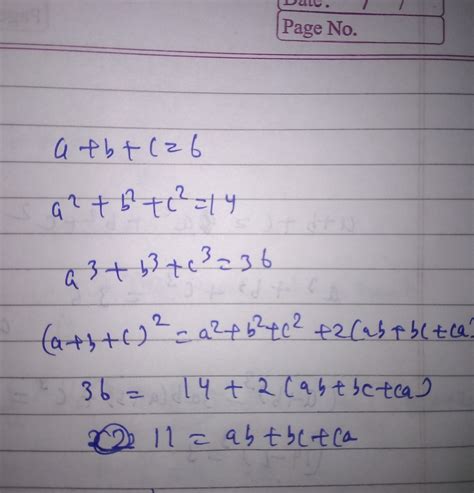 Date: / /
Page No.
a+b+c=6
a²+b²+c²=14
a³+b³+c³=36
(a+b+c)²=a²+b²+c²+2(ab+bc+ca)
36 = 14+2(ab+bc+ca)
11 = ab+bc+ca